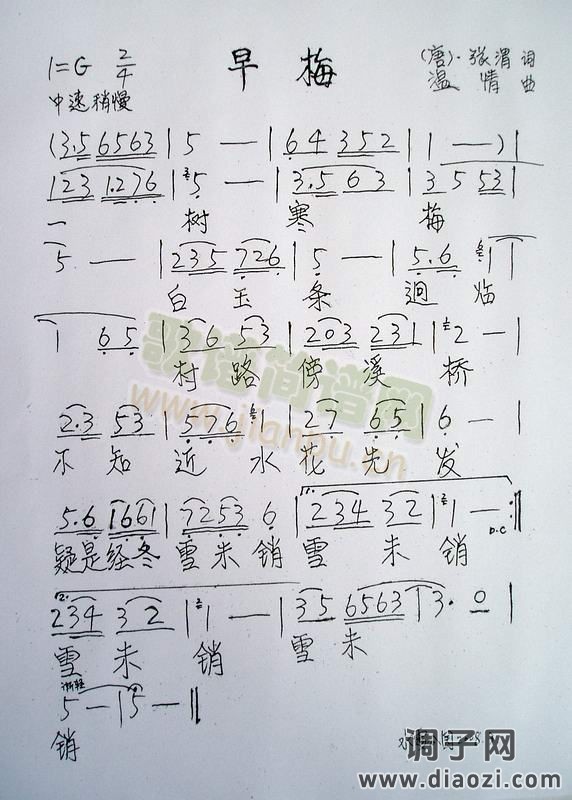 早 梅
1=G 2/4
(唐)·张渭 词
温 情 曲
中速稍慢
(3.5 6563 | 5 — | 64 352 | 1 —) |
123 1.276 | 5 — | 3.5 63 | 3 5 53 |
一 树 寒 梅
5 — — | 235 726 | 5 — | 5.6 1 |
白 玉 条 迥 临
1 65 | 36 53 | 203 231 | 2 — |
村 路 傍 溪 桥
2.3 53 | 576 1 | 27 65 | 6 — |
不 知 近 水 花 先 发
5.6 1661 | 7253 6 | 234 32 | 1 — :||
D.C
疑是经冬 雪未销 雪 未 销
2.
234 32 | 1 — | 35 6563 | 3. 0 |
雪 未 销 雪 未
渐轻
5 — | 5 — ||
销
歌谱简谱网
www.jianpu.cn
调子网
www.diaozi.com